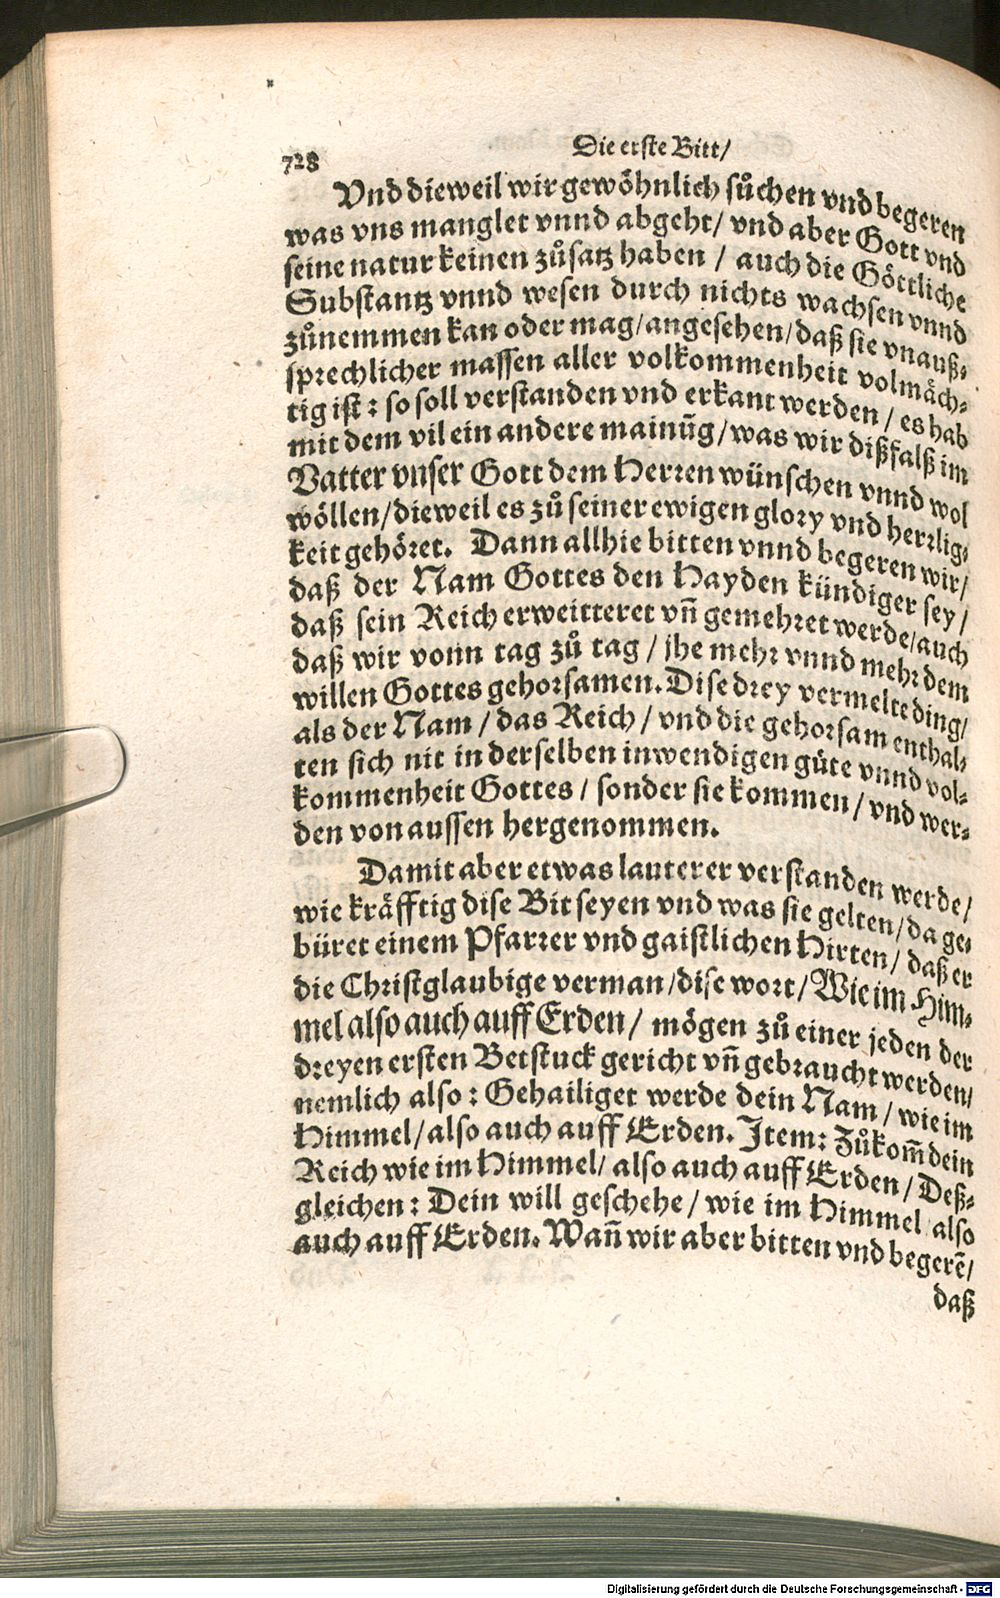 728
Die erste Bitt/
Vnd dieweil wir gewöhnlich sůchen vnd begeren
was vns manglet vnnd abgeht/ vnd aber Gott vnd
seine natur keinen zůsatz haben / auch die Göttliche
Substantz vnnd wesen durch nichts wachsen vnnd
zůnemmen kan oder mag/angesehen/daß sie vnauß⸗
sprechlicher massen aller volkommenheit volmäch⸗
tig ist: so soll verstanden vnd erkant werden / es hab
mit dem vil ein andere mainūg/was wir dißfalß im
Vatter vnser Gott dem Herren wünschen vnnd wol
wöllen/dieweil es zů seiner ewigen glory vnd herrlig⸗
keit gehöret. Dann allhie bitten vnnd begeren wir/
daß der Nam Gottes den Hayden kündiger sey/
daß sein Reich erweitteret vñ gemehret werde/auch
daß wir vonn tag zů tag / jhe mehr vnnd mehr dem
willen Gottes gehorsamen. Dise drey vermelte ding/
als der Nam / das Reich / vnd die gehorsam enthal⸗
ten sich nit in derselben inwendigen güte vnnd vol⸗
kommenheit Gottes / sonder sie kommen / vnd wer⸗
den von aussen hergenommen.
Damit aber etwas lauterer verstanden werde/
wie kräfftig dise Bit seyen vnd was sie gelten/da ge⸗
büret einem Pfarrer vnd gaistlichen Hirten/ daß er
die Christglaubige verman/dise wort/Wie im Him⸗
mel also auch auff Erden/ mögen zů einer jeden der
dreyen ersten Betstuck gericht vñ gebraucht werden/
nemlich also: Gehailiget werde dein Nam / wie im
Himmel/also auch auff Erden. Item: Zůkom̃ dein
Reich wie im Himmel/ also auch auff Erden / Deß⸗
gleichen: Dein will geschehe / wie im Himmel also
auch auff Erden. Wañ wir aber bitten vnd begerē/
daß
Digitalisierung gefördert durch die Deutsche Forschungsgemeinschaft - DFG